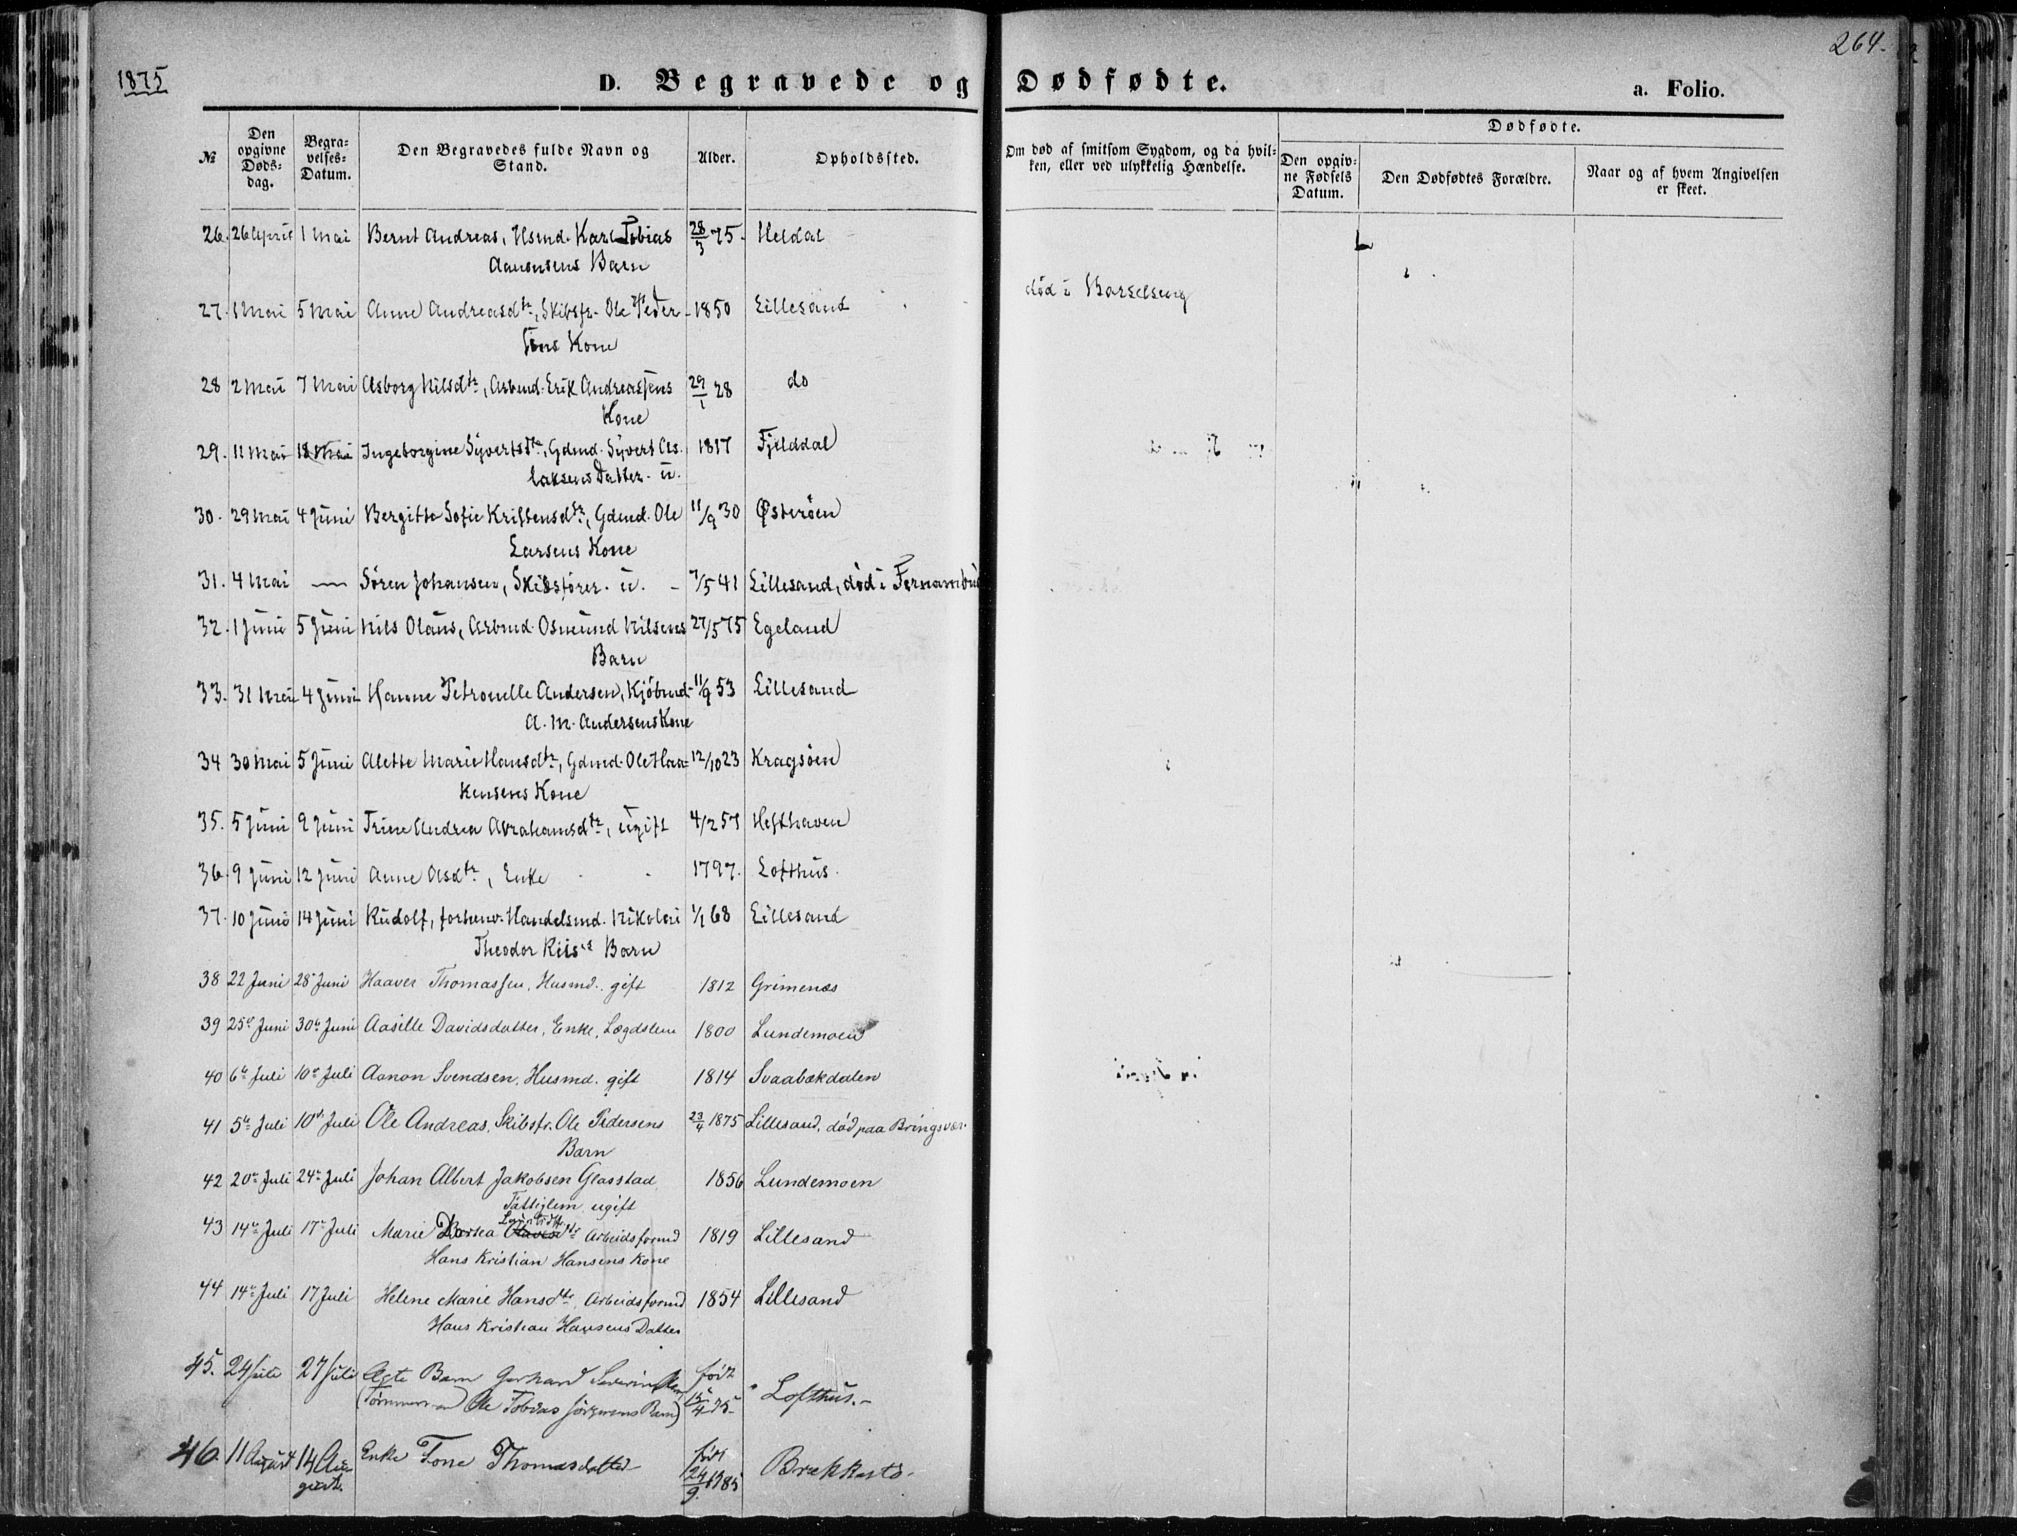 1875
264.
D. Begravede og Dødfødte.
a. Folio.
№
Den opgivne Døds-dag.
Begra-velses-Datum.
Den Begravedes fulde Navn og Stand.
Alder.
Opholdssted.
Om død af smitsom Sygdom, og da hvil-ken, eller ved ulykkelig Hændelse.
Dødfødte.
Den opgiv-ne Fødsels Datum.
Den Dødfødtes Forældre.
Naar og af hvem Angivelsen er skeet.
26. 26 April 1 Mai Bernt Andreas, Hsmd. Karl Tobias 28/3 75. Heldal
Aanensens Barn
27. 1 Mai 5 Mai Anne Andreasdtr, Skibsfr. Ole Peder- 1850 Lillesand død i Barselseng
sens Kone
28 2 Mai 7 Mai Asborg Nilsdtr, Arbmd. Erik Andreassens 29/1 28 do
Kone
29. 11 Mai 18 Mai Ingeborgine Syvertsdtr, Gdmd. Syvert As- 1817 Fjelddal
laksens Datter. u.
30. 29 Mai 4 Juni Bergitte Sofie Kristensdtr, Gdmd. Ole 11/9 30 Østerøen
Larsens Kone
31. 4 Mai — Søren Johansen, Skibsfører. u. - 7/5 41 Lillesand, død i Fernambu
32. 1 Juni 5 Juni Nils Olaus, Arbmd. Osmund Nilsens 27/5 75 Egeland
Barn
33. 31 Mai 4 Juni Hanne Petronelle Andersen, Kjøbmd. 11/9 53 Lillesand
A. M. Andersens Kone
34 30 Mai 5 Juni Alette Marie Hansdtr, Gdmd. Ole Haa- 12/10 23 Kragsøen
kensens Kone
35. 5 Juni 9 Juni Trine Andrea Abrahamsdtr, ugift 4/2 57 Hesthaven
36. 9 Juni 12 Juni Anne Olsdtr, Enke 1797. Lofthus.
37. 10 Juni 14 Juni Rudolf, forhenv. Handelsmd. Nikolai 1/1 68 Lillesand
Theodor Riis's Barn
38 22 Juni 28 Juni Haaver Thomassen, Husmd. gift 1812 Grimenæs
39 25de Juni 30te Juni Aasille Davidsdatter, Enke, Lægdslem 1800 Lundemoen
40 6te Juli 10de Juli Aanon Svendsen, Husmd. gift 1814 Svaabækdalen
41 5te Juli 10de Juli Ole Andreas, Skibsfr. Ole Pedersens 23/4 1875 Lillesand, død paa Bringsvær.
Barn
42 20de Juli 24de Juli Johan Albert Jakobsen Glasstad 1856 Lundemoen
Fattiglem ugift
43 14de Juli 17de Juli Marie Dorthea Arbeidsformd 1819 Lillesand
Hans Kristian Hansens Kone
44 14de Juli 17 Juli Helene Marie Hansdtr, Arbeidsformd 1854 Lillesand
Hans Kristian Hansens Datter
45. 24 Juli 27 Juli Ægte Barn Gerhard Severin født Lofthus.
Ole Tobias Jørgensens Barn) 15/4 75
46. 11 August 14 Au- Enke Tone Thomasdatter født Brækkestø.
gust. 24/9 1785